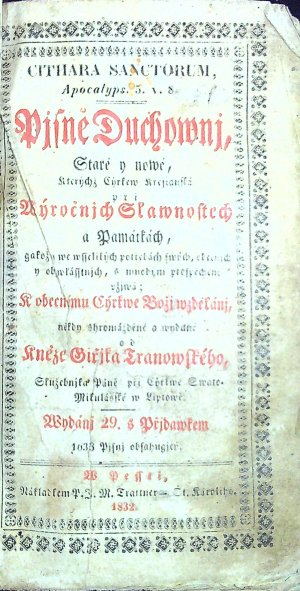 CITHARA SANCTORUM,
Apocalyps. 5. v. 8.
Pjsně Duchownj,
Staré y nowé,
Kterychž Cýrkew Křesťanská
při
Weyročnjch Slawnostech
a Památkách,
gakožy we wsseligých potřebách swých,
y obwzlásstnjch, s mnohým prospěchem
vžjwá;
K obecnému Cýrkwe Božj wzdělánj,
někdy shromážděné a wydané
od
Kněze Giřjka Tranowského,
Služebnjka Páně při Cýrkwe Swato-
Mikulášské w Liptowě.
Wydánj 29. s Přjdawkem
1033 Pjsnj obsahugjcý.
W Pessti,
Nákladkem P. J. M. Trattner – St. Károliho.
1832.